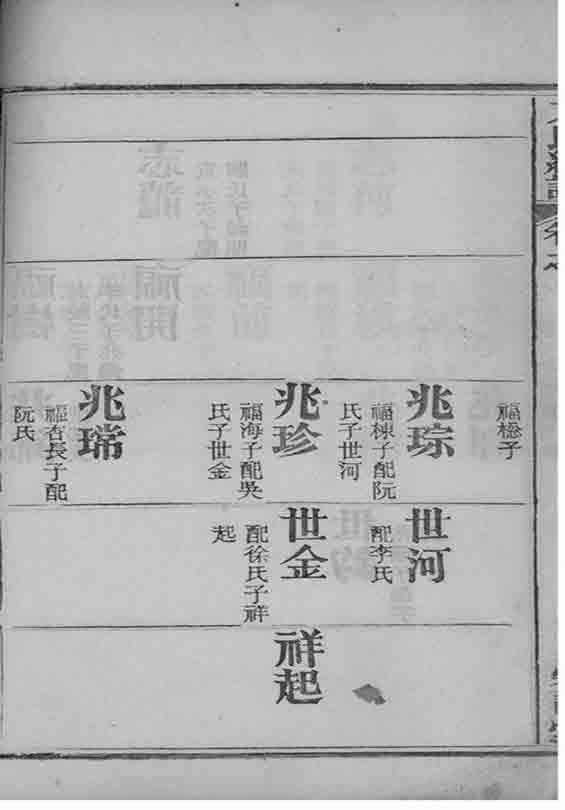 福棇子
兆琮
福棟子配阮
氏子世河
兆珍
福海子配吳
氏子世金
兆瑞
福杏長子配
阮氏
世河
配李氏
世金
配徐氏子祥
起
祥起